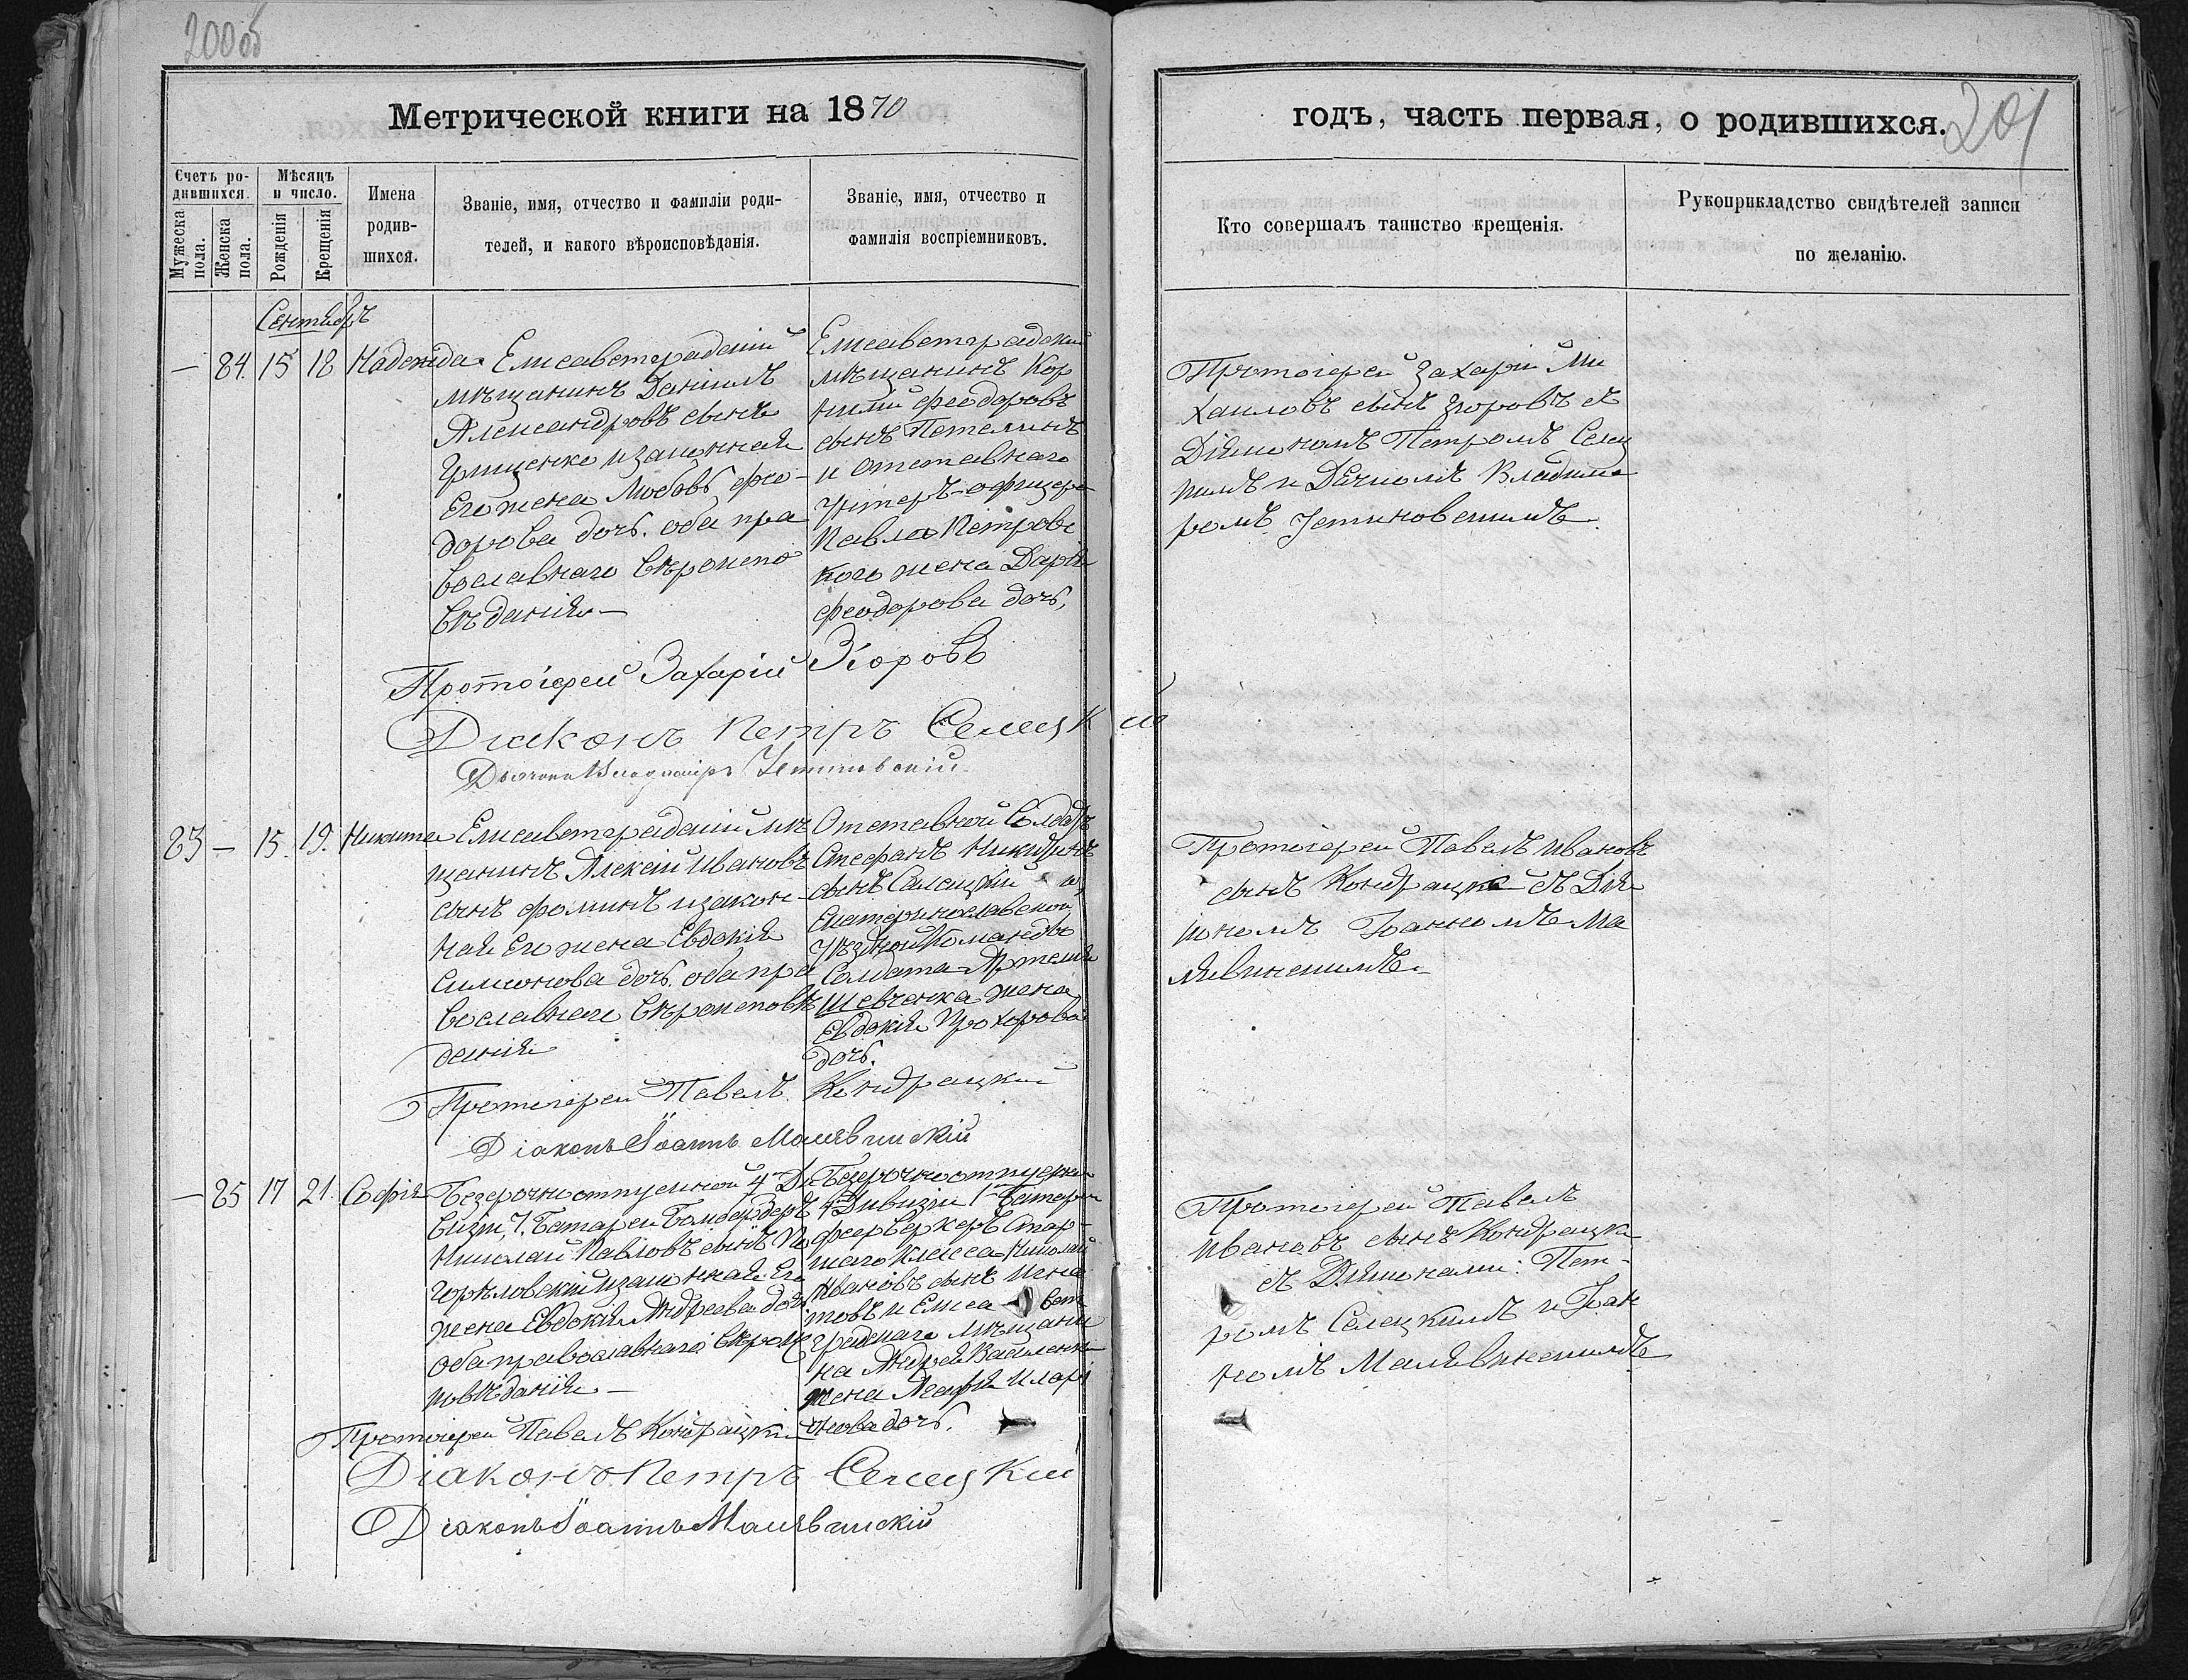 200об
Метрической книги на 1870
Счетъ ро-
дившихся.
Мужеска пола.
Женска пола.
Мѣсяцъ
и число.
Рожденія
Крещенія
Имена
родив-
шихся.
Званіе, имя, отчество и фамиліи роди-
телей, и какого вѣроисповѣданія.
Званіе, имя, отчество и
фамилія воспріемниковъ.
Сентябрь
— 84. 15 18 Надежда
Елисаветградскій
мѣщанинъ Даніилъ
Александровъ сынъ
Грищенко и законная
Его жена Любовь Фео-
дорова дочь. оба пра
вославнаго вѣроиспо
вѣданія —
Елисаветградскій
мѣщанинъ Кор
нилій Феодоровъ
сынъ Петелинъ
и отставнаго
Унтеръ-офицера
Павла Петровс
каго жена Дарія
Феодорова дочь,
Протоіерей Захарій Егоровъ
Діаконъ Петръ Селецкій
Дьячокъ Владиміръ Устиновскій
83 — 15. 19. Никита
Елисаветградскій мѣ
щанинъ Алексій Ивановъ
сынъ Фоминъ и закон-
ная Его жена Евдокія
Симеонова дочь. оба пра
вославнаго вѣроисповѣ
данія
Отставной Солдатъ
Стефанъ Никитинъ
сынъ Салацкій и
Екатеринославской
уѣздной Команды
Солдата Артемія
Шевченка жена
Евдокія Прохорова
дочь.
Протоіерей Павелъ Кондрацкій
Діаконъ Іоаннъ Малявинскій
— 85 17 21. Софія
Безсрочноотпускной 4 Ди
визіи, 1. Батареи Бомбардиръ
Николай Павловъ сынъ По
горѣловскій и законная Его
жена Евдокія Андреева дочь
оба православнаго вѣроис
повѣданія —
Безсрочноотпускн
4 Дивизіи 1й Батареи
фееръверкеръ Стар-
шаго класса Николай
Ивановъ сынъ Игна
товъ и Елиса вет
градскаго мѣщани
на Андрея Василенка
жена Агафія Иларі
онова дочь.
Протоіерей Павелъ Кондрацкій
Діаконъ Петръ Селецкій
Діаконъ Іоаннъ Малявинскій
годъ, часть первая, о родившихся.
201
Кто совершалъ таинство крещенія.
Рукоприкладство свидѣтелей записи
по желанію.
Протоіерей Захарій Ми
хаиловъ сынъ Егоровъ съ
Діакономъ Петромъ Селец
кимъ и Дьячкомъ Владими
ромъ Устиновскимъ.
Протоіерей Павелъ Ивановъ
сынъ Кондрацкій съ Діа
кономъ Іоанномъ Ма
лявинскимъ.
Протоіерей Павелъ
Ивановъ сынъ Кондрацкій
съ Діаконами: Пет-
ромъ Селецкимъ и Іоан
номъ Малявинскимъ